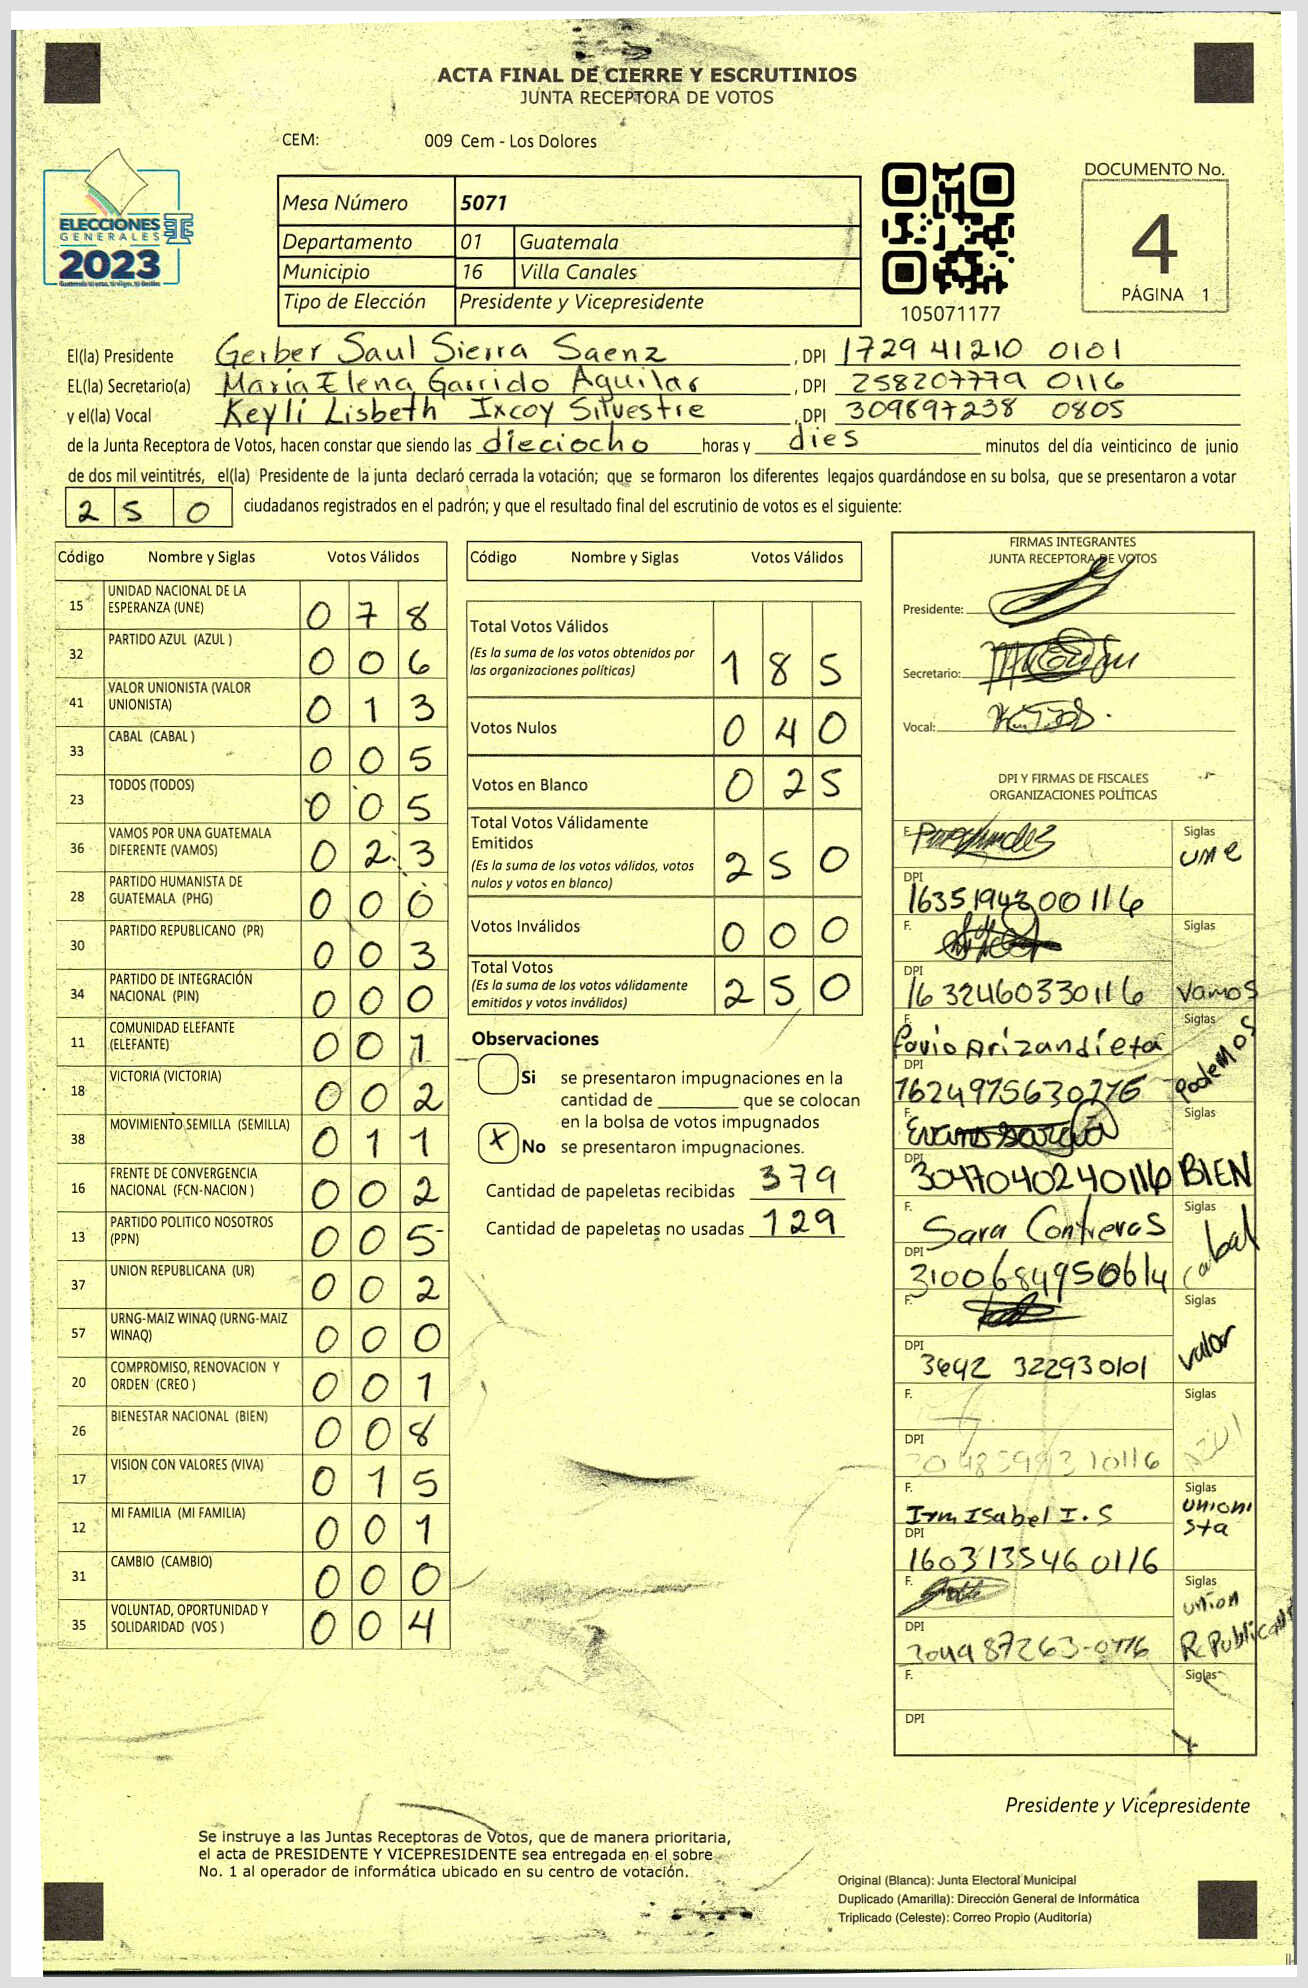 ACTA FINAL DE CIERRE Y ESCRUTINIOS
JUNTA RECEPTORA DE VOTOS
CEM: 009 Cem - Los Dolores
ELECCIONES
GENERALES
2023
Mesa Número 5071
Departamento 01 Guatemala
Municipio 16 Villa Canales
Tipo de Elección Presidente y Vicepresidente
105071177
DOCUMENTO No.
4
PÁGINA 1
El(la) Presidente Gerber Saul Sierra Saenz, DPI 1729 41210 0101
EL(la) Secretario(a) María Elena Garrido Aguilar, DPI 258207779 0116
y el(la) Vocal Keyli Lisbeth Ixcoy Silvestre, DPI 309897238 0805
de la Junta Receptora de Votos, hacen constar que siendo las dieciocho horas y dies minutos del día veinticinco de junio
de dos mil veintitrés, el(la) Presidente de la junta declaró cerrada la votación; que se formaron los diferentes legajos guardándose en su bolsa, que se presentaron a votar
250 ciudadanos registrados en el padrón; y que el resultado final del escrutinio de votos es el siguiente:
Código Nombre y Siglas Votos Válidos
15 UNIDAD NACIONAL DE LA ESPERANZA (UNE) 078
32 PARTIDO AZUL (AZUL ) 006
41 VALOR UNIONISTA (VALOR UNIONISTA) 013
33 CABAL (CABAL ) 005
23 TODOS (TODOS) 005
36 VAMOS POR UNA GUATEMALA DIFERENTE (VAMOS) 023
28 PARTIDO HUMANISTA DE GUATEMALA (PHG) 000
30 PARTIDO REPUBLICANO (PR) 003
34 PARTIDO DE INTEGRACIÓN NACIONAL (PIN) 000
11 COMUNIDAD ELEFANTE (ELEFANTE) 001
18 VICTORIA (VICTORIA) 002
38 MOVIMIENTO SEMILLA (SEMILLA) 011
16 FRENTE DE CONVERGENCIA NACIONAL (FCN-NACION ) 002
13 PARTIDO POLITICO NOSOTROS (PPN) 005
37 UNION REPUBLICANA (UR) 002
57 URNG-MAIZ WINAQ (URNG-MAIZ WINAQ) 000
20 COMPROMISO, RENOVACION Y ORDEN (CREO ) 001
26 BIENESTAR NACIONAL (BIEN) 008
17 VISION CON VALORES (VIVA) 015
12 MI FAMILIA (MI FAMILIA) 001
31 CAMBIO (CAMBIO) 000
35 VOLUNTAD, OPORTUNIDAD Y SOLIDARIDAD (VOS ) 004
Código Nombre y Siglas Votos Válidos
Total Votos Válidos 185
(Es la suma de los votos obtenidos por
las organizaciones políticas)
Votos Nulos 040
Votos en Blanco 025
Total Votos Válidamente
Emitidos 250
(Es la suma de los votos válidos, votos
nulos y votos en blanco)
Votos Inválidos 000
Total Votos 250
(Es la suma de los votos válidamente
emitidos y votos inválidos)
Observaciones
Si se presentaron impugnaciones en la
cantidad de ________ que se colocan
en la bolsa de votos impugnados
X No se presentaron impugnaciones.
Cantidad de papeletas recibidas 379
Cantidad de papeletas no usadas 129
FIRMAS INTEGRANTES
JUNTA RECEPTORA DE VOTOS
Presidente:
Secretario:
Vocal:
DPI Y FIRMAS DE FISCALES
ORGANIZACIONES POLÍTICAS
F. Siglas UME
DPI
F. Siglas Vamos
DPI 1632460330116
F. Siglas Podemos
DPI
F. Siglas BIEN
DPI 3047040240116
F. Sara Contreras Siglas Cabal
DPI 3100684950614
F. Siglas Valor
DPI
F. Siglas AZUL
DPI
F. Irm Isabel I. S Siglas Unionista
DPI 1603135460116
F. Siglas Union Republicana
DPI
F. Siglas
DPI
Presidente y Vicepresidente
Se instruye a las Juntas Receptoras de Votos, que de manera prioritaria,
el acta de PRESIDENTE Y VICEPRESIDENTE sea entregada en el sobre
No. 1 al operador de informática ubicado en su centro de votación.
Original (Blanca): Junta Electoral Municipal
Duplicado (Amarilla): Dirección General de Informática
Triplicado (Celeste): Correo Propio (Auditoría)